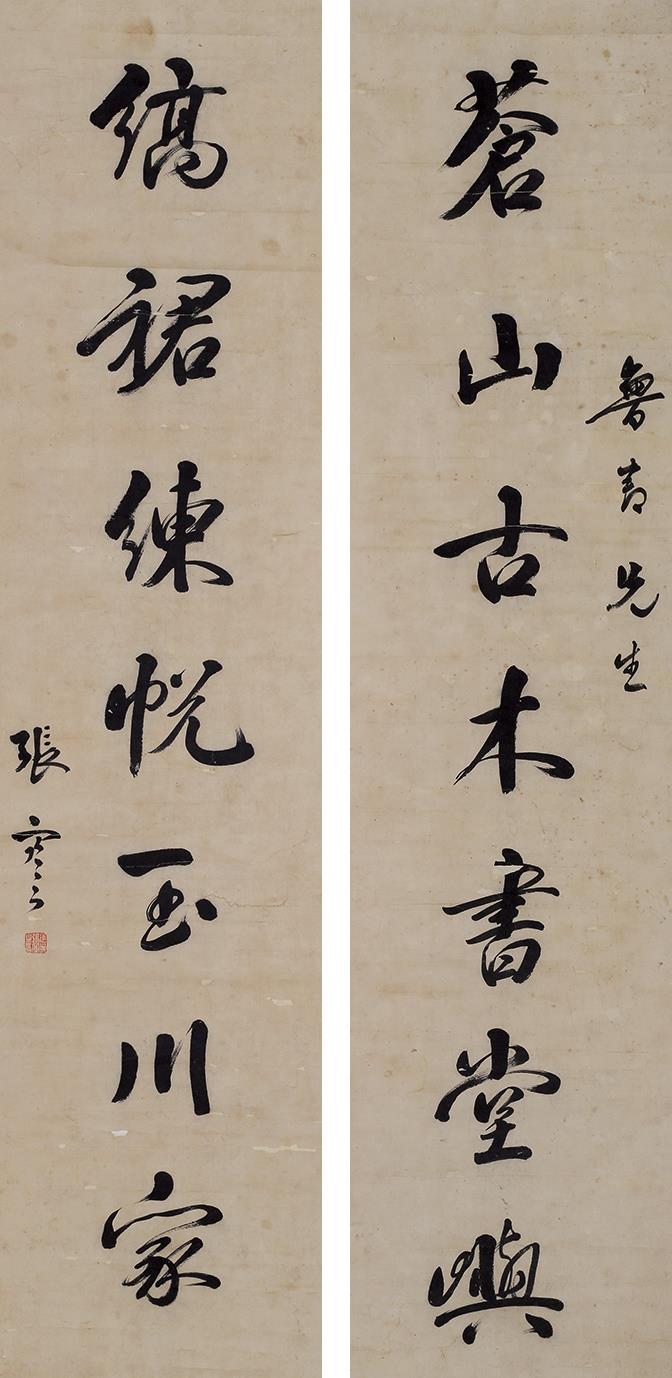 魯青先生
蒼山古木書堂嶼
縞裙練帨玉川家
張謇